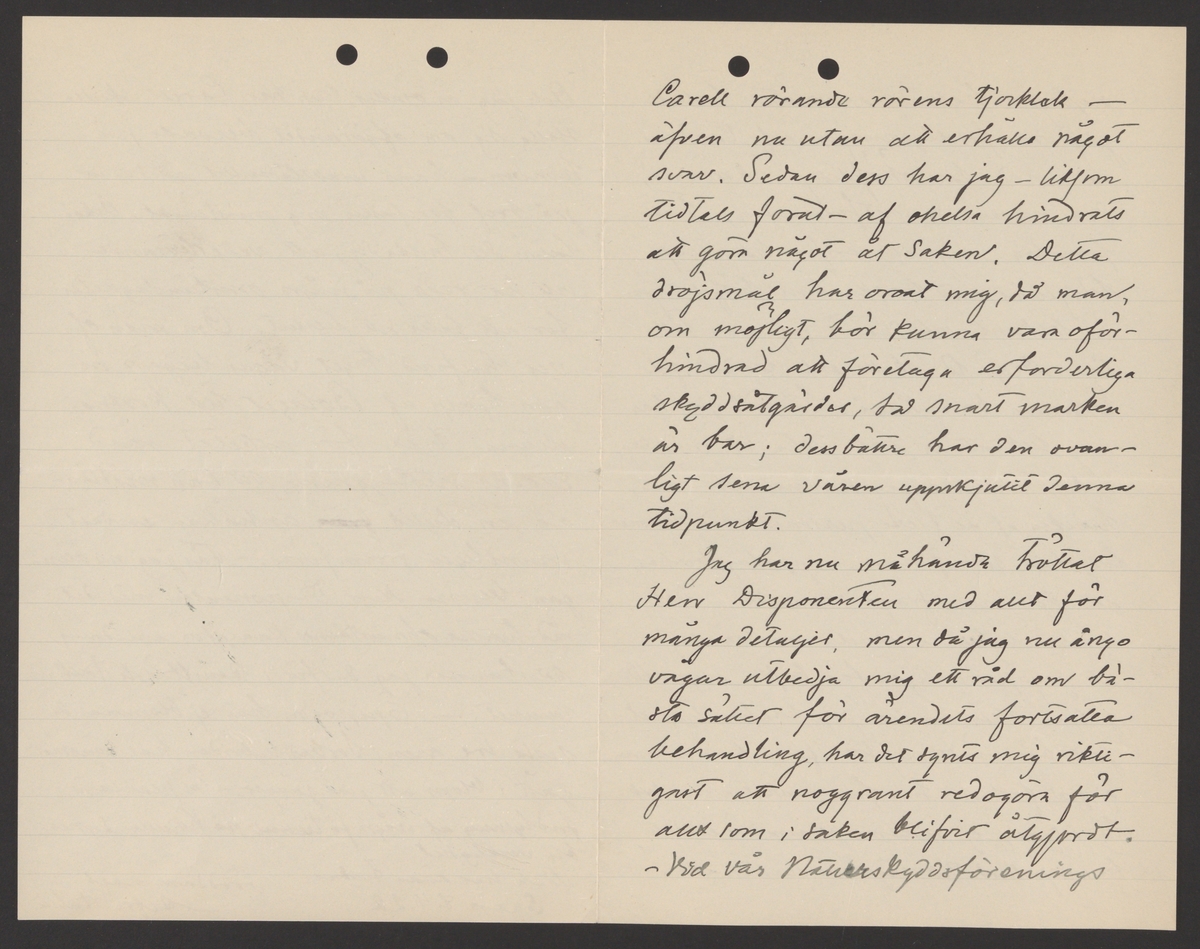 Carell rörande rörens tjocklek —
äfven nu utan att erhålla något
svar. Sedan dess har jag – liksom
tidtals förut – af ohelsa hindrats
att göra något åt saken. Detta
dröjsmål har oroat mig, då man,
om möjligt, bör kunna vara oför-
hindrad att företaga erforderliga
skyddsåtgärder, så snart marken
är bar; dessbättre har den ovan-
ligt sena våren uppskjutit denna
tidpunkt.
Jag har nu måhända tröttat
Herr Disponenten med allt för
många detaljer, men då jag nu ånyo
vågar utbedja mig ett råd om bä-
sta sättet för ärendets fortsatta
behandling, har det synts mig rikti-
gast att noggrant redogöra för
allt som i saken blifvit åtgjordt.
– Vid vår Naturskyddsförenings